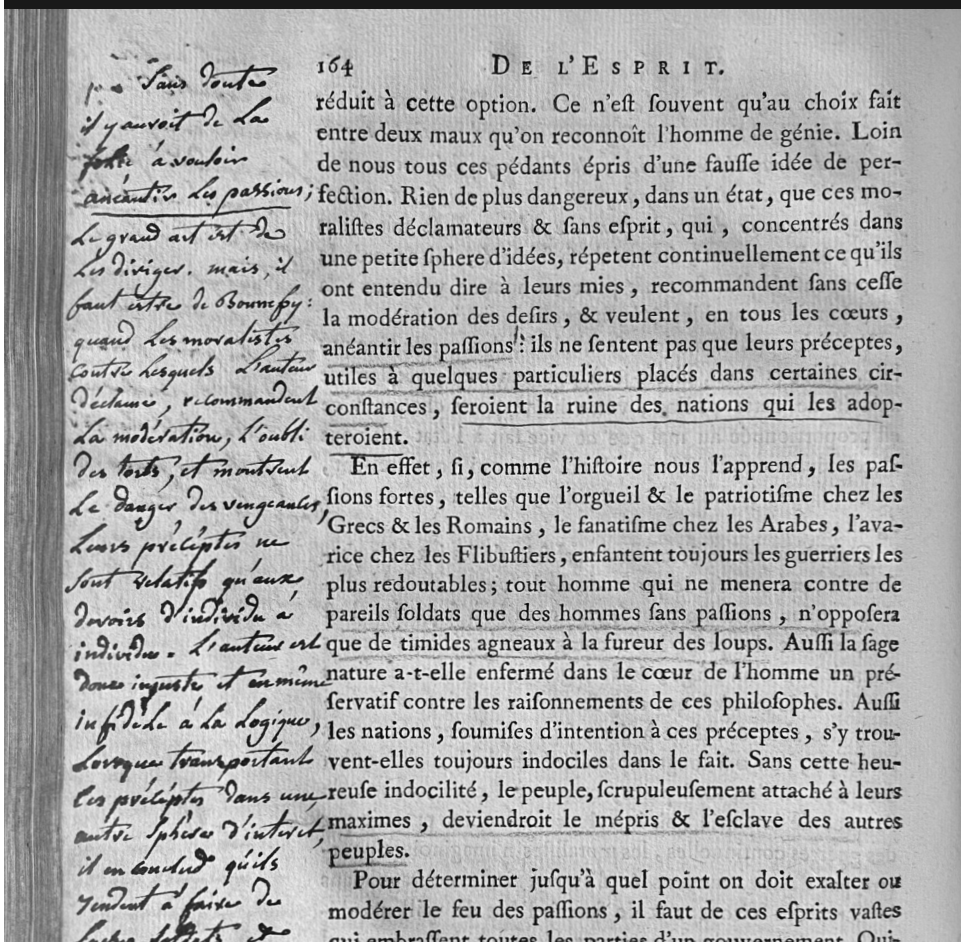 164 DE L'ESPRIT.
réduit à cette option. Ce n'eſt ſouvent qu'au choix fait
entre deux maux qu'on reconnoît l'homme de génie. Loin
de nous tous ces pédants épris d'une fauſſe idée de per-
fection. Rien de plus dangereux, dans un état, que ces mo-
raliſtes déclamateurs & ſans eſprit, qui, concentrés dans
une petite ſphere d'idées, répetent continuellement ce qu'ils
ont entendu dire à leurs mies, recommandent ſans ceſſe
la modération des deſirs, & veulent, en tous les cœurs,
anéantir les paſſions: ils ne ſentent pas que leurs préceptes,
utiles à quelques particuliers placés dans certaines cir-
conſtances, ſeroient la ruine des nations qui les adop-
teroient.
En effet, ſi, comme l'hiſtoire nous l'apprend, les paſ-
ſions fortes, telles que l'orgueil & le patriotiſme chez les
Grecs & les Romains, le fanatiſme chez les Arabes, l'ava-
rice chez les Flibuſtiers, enfantent toujours les guerriers les
plus redoutables; tout homme qui ne menera contre de
pareils ſoldats que des hommes ſans paſſions, n'oppoſera
que de timides agneaux à la fureur des loups. Auſſi la ſage
nature a-t-elle enfermé dans le cœur de l'homme un pré-
ſervatif contre les raiſonnements de ces philoſophes. Auſſi
les nations, ſoumiſes d'intention à ces préceptes, s'y trou-
vent-elles toujours indociles dans le fait. Sans cette heu-
reuſe indocilité, le peuple, ſcrupuleuſement attaché à leurs
maximes, deviendroit le mépris & l'eſclave des autres
peuples.
Pour déterminer juſqu'à quel point on doit exalter ou
modérer le feu des paſſions, il faut de ces eſprits vaſtes
qui embraſſent toutes les parties d'un gouvernement. Qui-
Sans doute
il y auroit de la
folie à vouloir
anéantir les passions;
Le grand art est de
les diriger. mais, il
faut estre de Bonnefoy:
quand les moralistes
contre lesquels L'auteur
déclame, recommandent
La modération, L'oubli
des torts, et montrent
Le danger des vengeances,
Leurs préceptes ne
sont relatifs qu'aux
devoirs d'individu à
individu. L'auteur est
donc injuste et en même
infidèle à La Logique,
Lorsque transportant
ces préceptes dans une
autre sphère d'interet,
il en conclud qu'ils
tendent à faire de